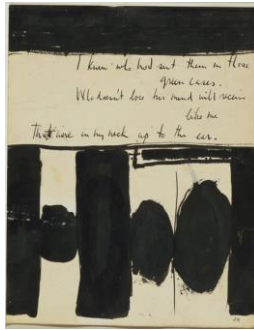 I knew who had sent them in those
green cases.
Who doesn't lose his mind will receive
like me
That wire in my neck up to the ear.